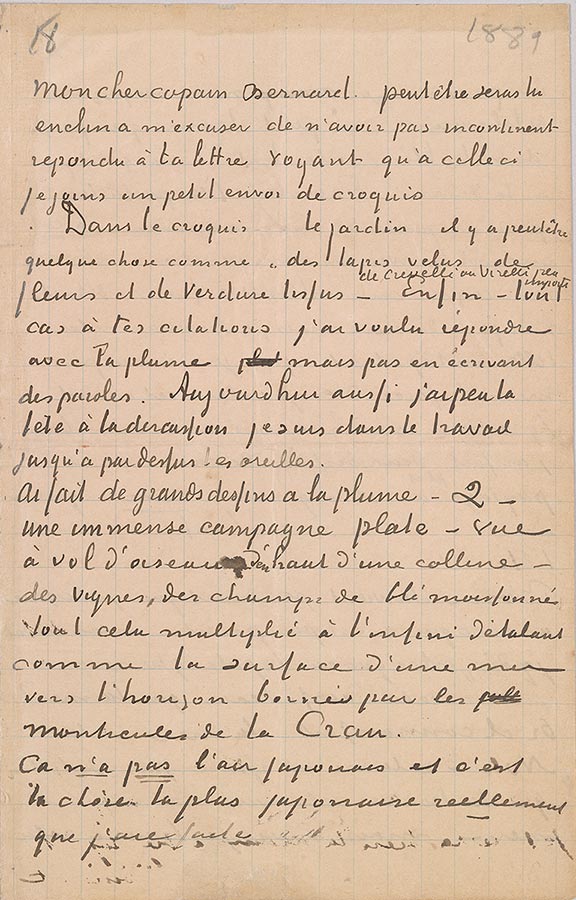 18 1889
mon cher copain Bernard. peut être seras tu
enclin a m'excuser de n'avoir pas incontinent
repondu à ta lettre voyant qu'a celle ci
je joins un petit envoi de croquis
. Dans le croquis le jardin il y a peut être
quelque chose comme "des tapis velus de
de Crevelli ou Virelli peu importe
fleurs et de verdure tissus – Enfin – tout
cas à tes citations j'ai voulu repondre
avec la plume mais pas en écrivant
des paroles. Aujourdhui aussi j'ai peu la
tête à la discussion je suis dans le travail
jusqu'a par dessus les oreilles.
Ai fait de grands dessins a la plume – 2 –
une immense campagne plate – vue
à vol d'oiseau du haut d'une colline –
des vignes, des champs de blé moissonné
tout cela multiplié à l'infini s'étalant
comme la surface d'une mer
vers l'horizon bornée par les
monticules de la Crau.
Ca n'a pas l'air japonais et c'est
la chose la plus japonaise réellement
que j'aie faite